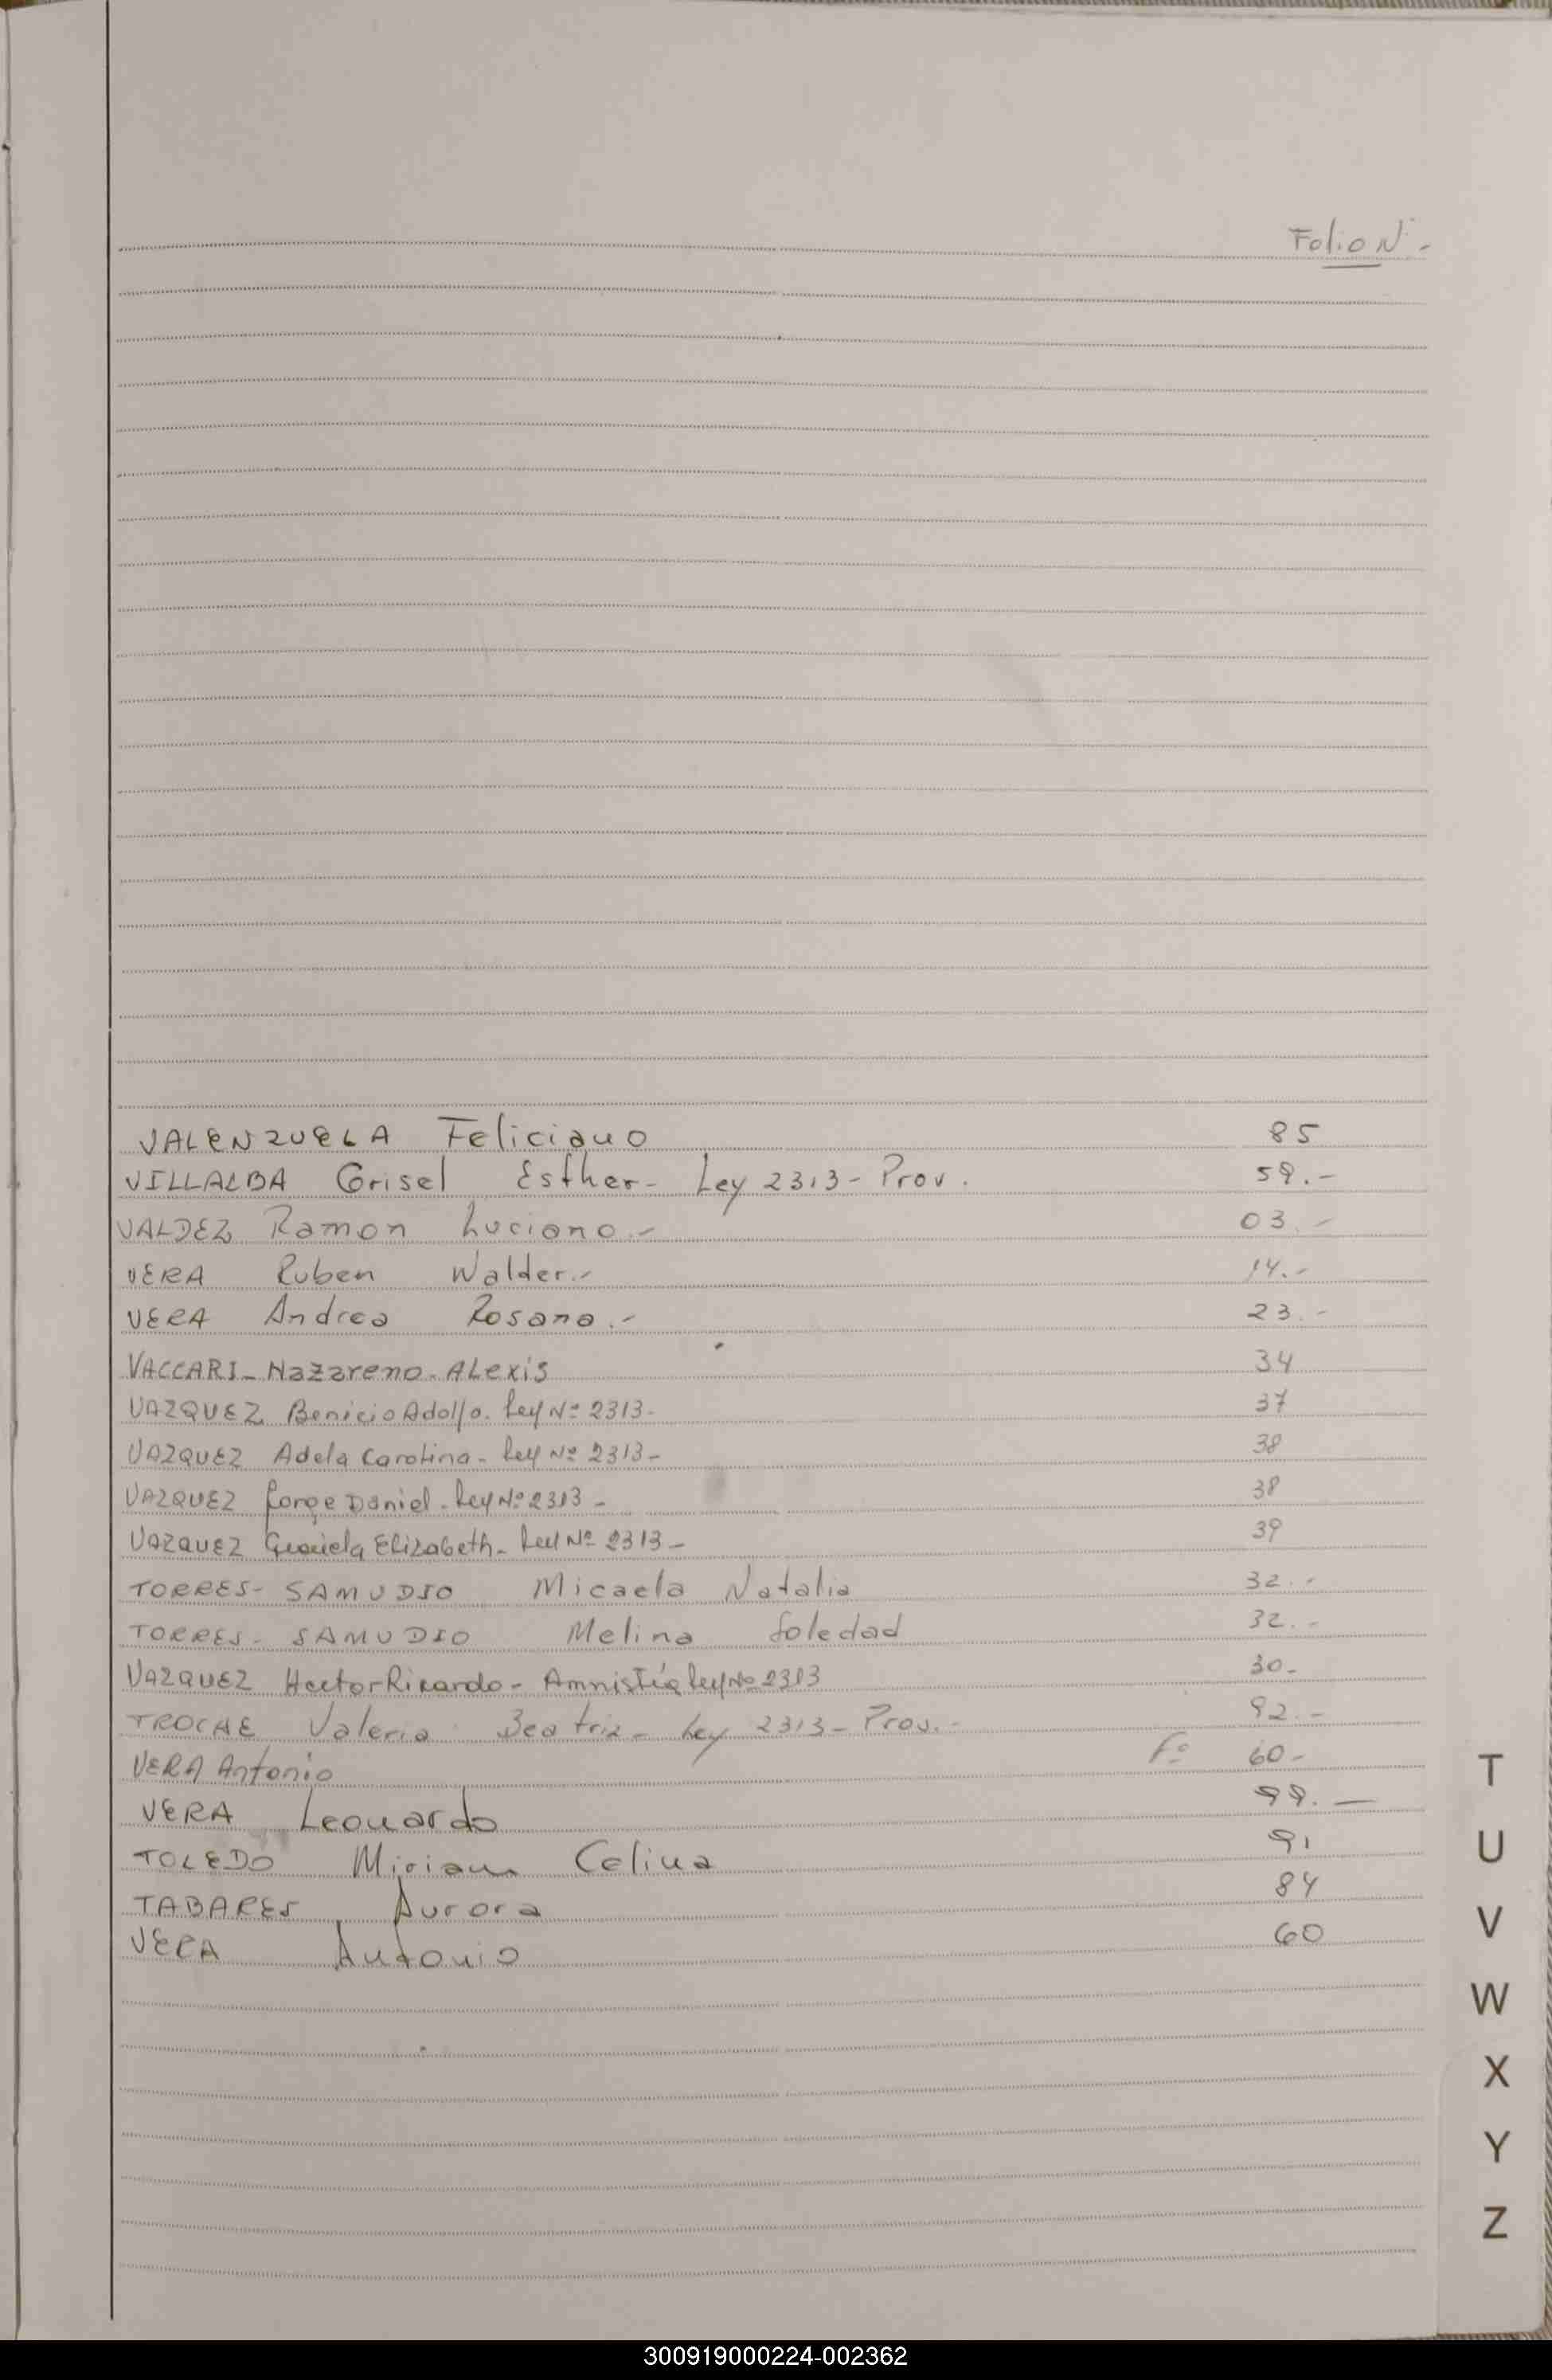 Folio Nº-
VALENZUELA Feliciano 85
VILLALBA Grisel Esther- Ley 2313- Prov. 59.-
VALDEZ Ramon Luciano.- 03.-
VERA Ruben Walder.- 14.-
VERA Andrea Rosana.- 23.-
VACCARI- Nazareno- ALexis 34
VAZQUEZ Benicio Adolfo. Ley Nº 2313- 37
VAZQUEZ Adela Carolina- Ley Nº 2313- 38
VAZQUEZ Jorge Daniel- Ley Nº 2313- 38
VAZQUEZ Graciela Elizabeth- Ley Nº 2313- 39
TORRES- SAMUDIO Micaela Natalia 32.-
TORRES- SAMUDIO Melina Soledad 32.-
VAZQUEZ Hector Ricardo- Amnistía Ley Nº 2313 30-
TROCHE Valeria Beatriz- Ley 2313- Prov.- 92.-
VERA Antonio Fº 60-
VERA Leonardo 99.-
TOLEDO Miriam Celina 91
TABARES Aurora 84
VERA Antonio 60
T
U
V
W
X
Y
Z
300919000224-002362